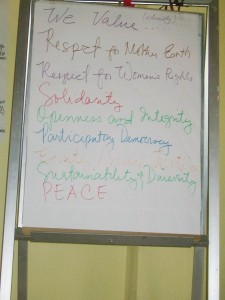 We Value...
Respect for Mother Earth
Respect for Women's Rights
Solidarity
Openness and Integrity
Participatory Democracy
Sustainability & Diversity
PEACE